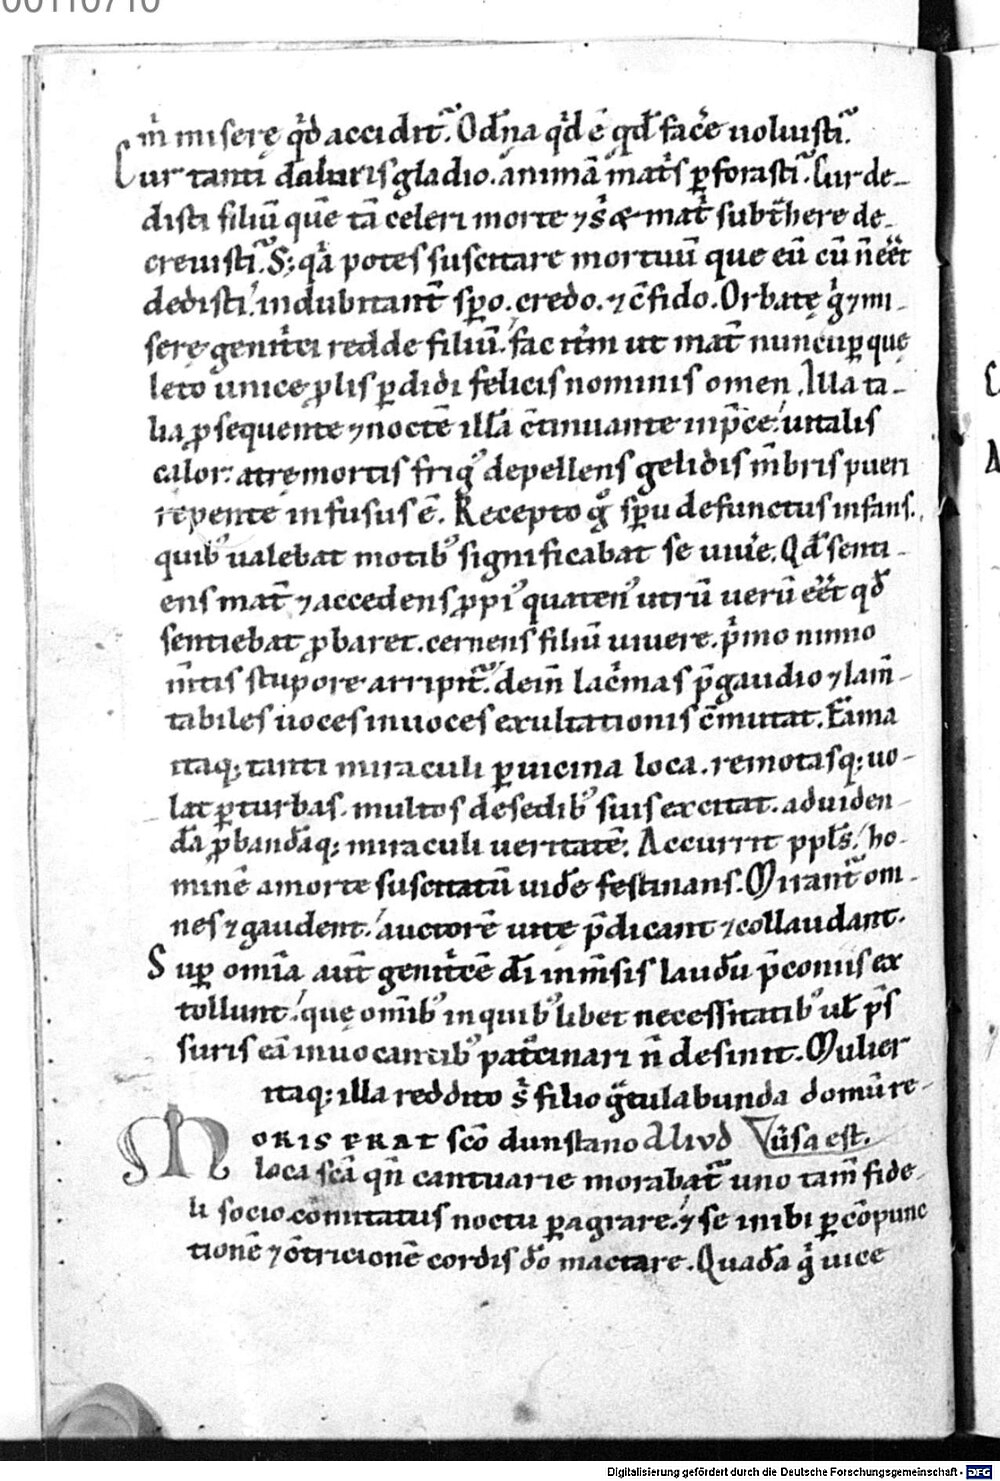 00110710
m̄ miserę qͥd accidit᷑. O dn̄a qͥd ē qd̄ facͤe uoluisti᷑.
Cur tanti doloris gladio. animā mat̄s ꝑforasti᷑. Cur de-
disti filiū quē tā celeri morte ⁊ s̄ & mat̄ subt̄here de-
creuisti᷑. S; qͥa potes suscitare mortuū que eū cū n̄ eēt
dedisti. indubitant̄ sp̄o. credo. ⁊ c̄fido. Orbatę gͥ ⁊ mi-
serę genitͥci redde filiū. fac itͥm ut mat̄ nuncuper quę
leto unicę ꝓlis ꝑdidi felicis nominis omen. Illa ta-
lia ꝓsequente ⁊ noctē illā c̄tinuante in p̄ce. uitalis
calor: atrę mortis frigꝰ depellens gelidis m̄bris pueri
repente infusus ē. Recepto gͦ sp̄u defunctus infans.
quibꝰ ualebat motibꝰ significabat se uiuͤe. Qd̄ senti-
ens mat̄ ⁊ accedens ꝓpiꝰ quatenꝰ utrū uerū eēt qd̄
sentiebat ꝓbaret. cernens filiū uiuere. pͥmo nimio
m̄tis stupore arripit᷑. dein̄ lacͥmas p̄ gaudio ⁊ lam̄-
tabiles uoces in uoces exultationis c̄mutat. Fama
itaq; tanti miraculi ꝑ uicina loca. remotasq; uo-
lat ꝑ turbas. multos de sedibꝰ suis excitat. ad uiden-
da ꝓbandaq; miraculi ueritatē. Accurrit ppl̄s. ho-
minē a morte suscitatū uidͤe festinans. Mirant᷑ om-
nes ⁊ gaudent. auctorē uitę p̄dicant ⁊ collaudant.
Suꝑ omīa aut̄ genitͥcē dī inm̄sis laudū p̄coniis ex
tollunt. quę omībꝰ in quibꝰlibet necessitatibꝰ ul̄ p̄s
suris eā inuocantibꝰ patͦcinari n̄ desinit. Mulier
itaq; illa reddito s̄ filio gͣtulabunda domū re-
MORIS ERAT sc̄o dunstano Aliud uͬsa est.
loca sc̄a qn̄ cantuarie morabat᷑ uno tam̄ fide-
li socio comitatus noctu ꝑagrare. ⁊ se inibi ꝑ cōpunc
tionē ⁊ ꝯtricionē cordis dō mactare. Quadā gͥ uice
Digitalisierung gefördert durch die Deutsche Forschungsgemeinschaft - DFG